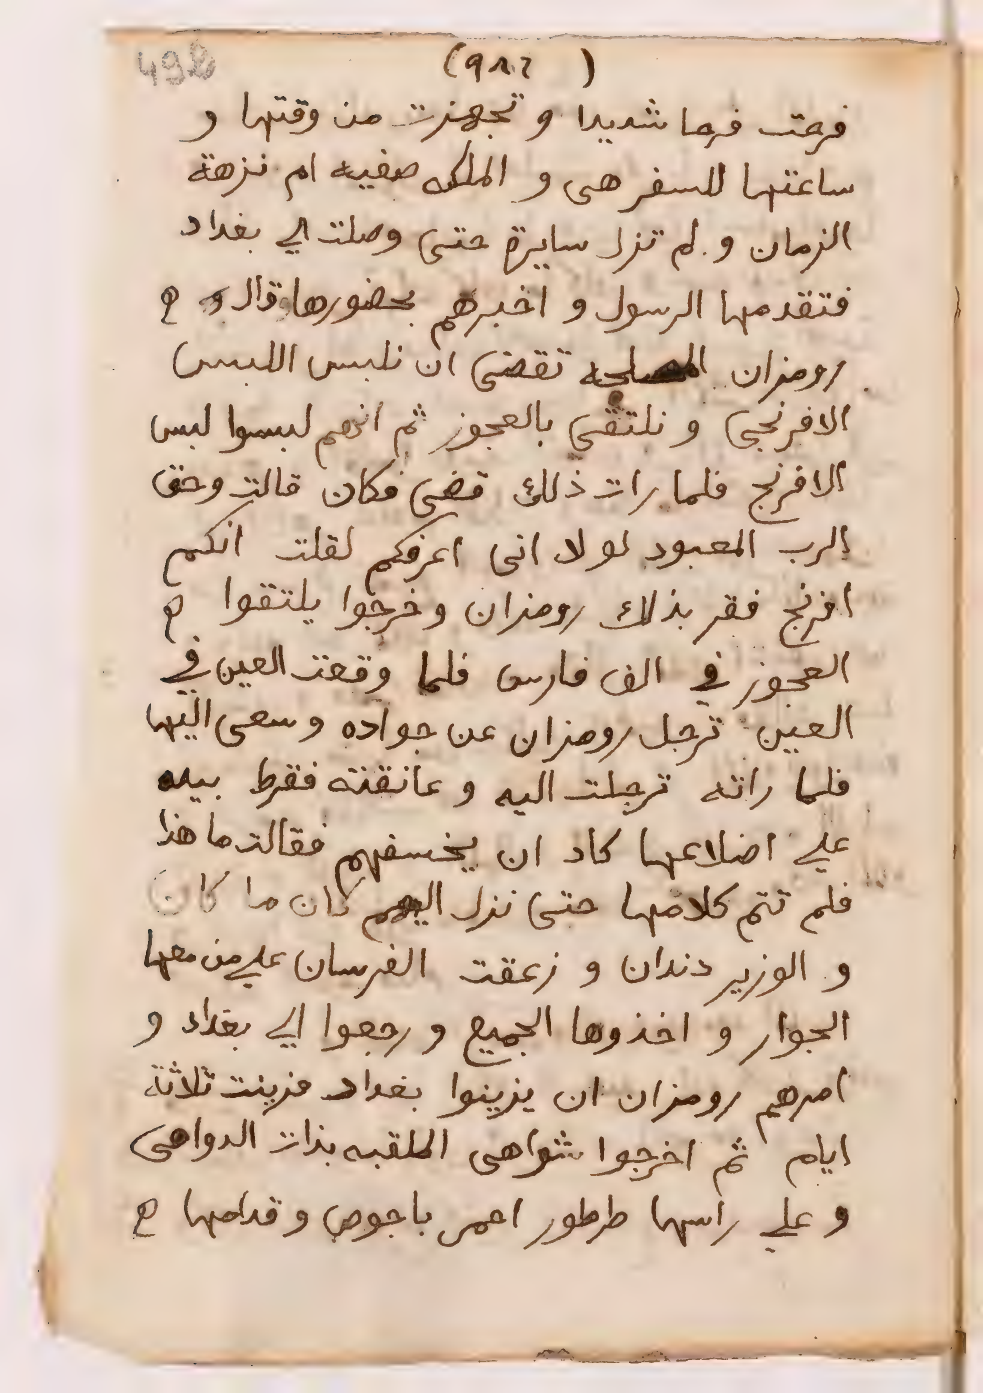 498
(٩٨٢ )
فرحت فرحا شديدا و تجهزت من وقتها و
ساعتها للسفر هى و الملكه صفيه ام نزهة
الزمان و لم تزل سايرة حتى وصلت الي بغداد
فتقدمها الرسول و اخبرهم بحضورها قال
رومزان المصلحه تقضى ان نلبس اللبس
الافرنجى و نلتقي بالعجوز ثم انهم لبسوا لبس
الافرنج فلما رات ذلك قضى فكان قالت وحق
الرب المعبود لو لا انى اعرفكم لقلت انكم
افرنج فقر بذلك رومزان و خرجوا يلتقوا
العجوز في الف فارس فلما وقعت العين في
العين ترجل رومزان عن جواده و سعى اليها
فلما راته ترجلت اليه و عانقته فقرط بيده
علي اضلاعها كاد ان يخسفهم فقالت ما هذا
فلم تتم كلامها حتى نزل اليهم كان ما كان
و الوزير دندان و زعقت الفرسان علي من معها
الجوار و اخذوها الجميع و رجعوا الي بغداد و
امرهم رومزان ان يزينوا بغداد فزينت ثلاثة
ايام ثم اخرجوا شواهى الملقبه بذات الدواهى
و علي راسها طرطور احمر باخوص و قدامها